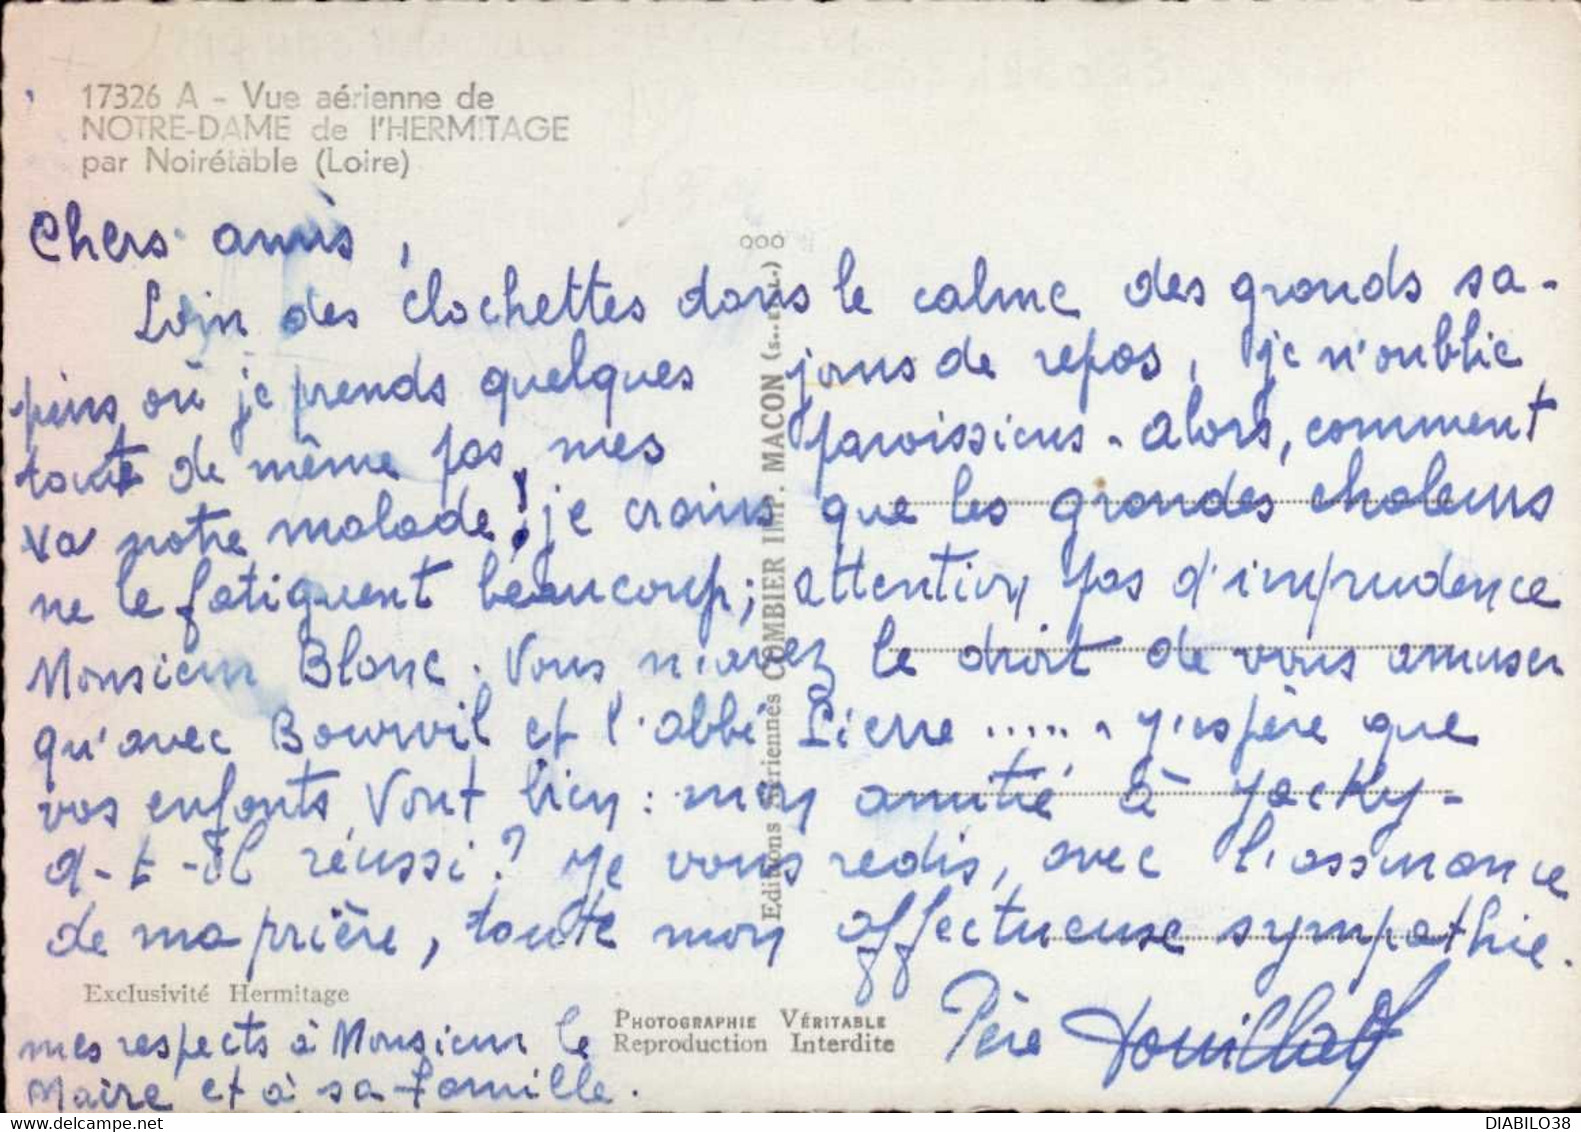 17326 A - Vue aérienne de
NOTRE-DAME de l'HERMITAGE
par Noirétable (Loire)
Chers amis,
Loin des clochettes dans le calme des grands sa-
pins où je prends quelques jours de repos, je n'oublie
toute de même pas mes paroissiens - alors, comment
va notre malade! je crains que les grandes chaleurs
ne le fatiguent beaucoup; attention pas d'imprudence
Monsieur Blanc. Vous n'avez le droit de vous amuser
qu'avec Bourvil et l'abbé Pierre ...... J'espère que
vos enfants vont bien : mon amitié à Jacky -
a-t-il réussi? Je vous redis, avec l'assurance
de ma prière, toute mon affectueuse sympathie.
Père
mes respects à Monsieur le
Maire et à sa famille.
Exclusivité Hermitage
PHOTOGRAPHIE VÉRITABLE
Reproduction Interdite
Editions Sériennes COMBIER IMP. MACON (s..t.L.) ooo
DIABILO38